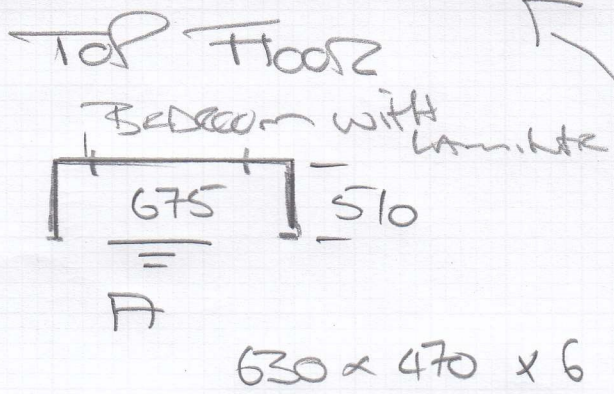 TOP FLOOR
BEDROOM WITH
LAMINATE
675 510
A
630 x 470 x 6